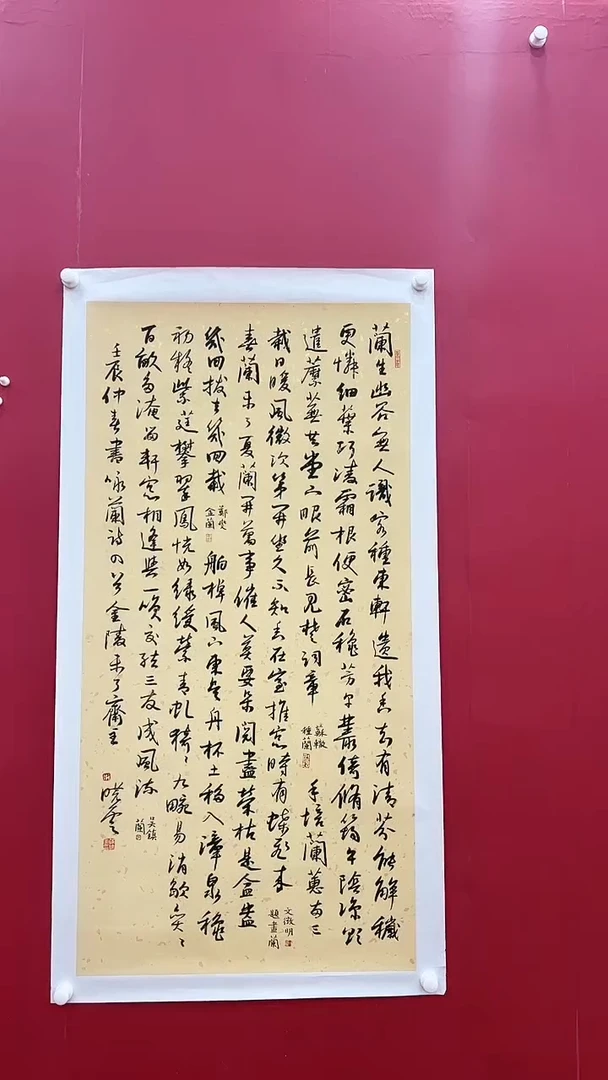 蘭生幽谷無人識客種東軒遺我香知有清芬能解穢
更憐細葉巧凌霜根便密石穠芳草叢倚脩筠午陰涼欲
遣蘼蕪共堂下眼前長見楚詞章
蘇轍
種蘭
手培蘭蕙兩三
栽日暖風微次第開坐久不知香在室推窗時有蝶飛來
文徵明
題畫蘭
春蘭未了夏蘭開萬事催人莫要呆閱盡榮枯是盆盎
幾回拔去幾回栽
鄭燮
盆蘭
舶棹風 東 舟杯土移入漳泉
初移紫莛攀翠鳳恍如綠綬縈青虬猗猗九畹易消歇奕奕
百畝多淹留軒窗相逢與一笑交結三友成風流
吳鎮
蘭
壬辰仲春書咏蘭詩四首金陵未了齋主
曉雲